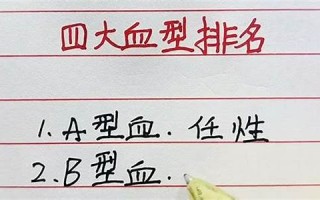 四大血型排名
1.A型血.任性
2.B型血.